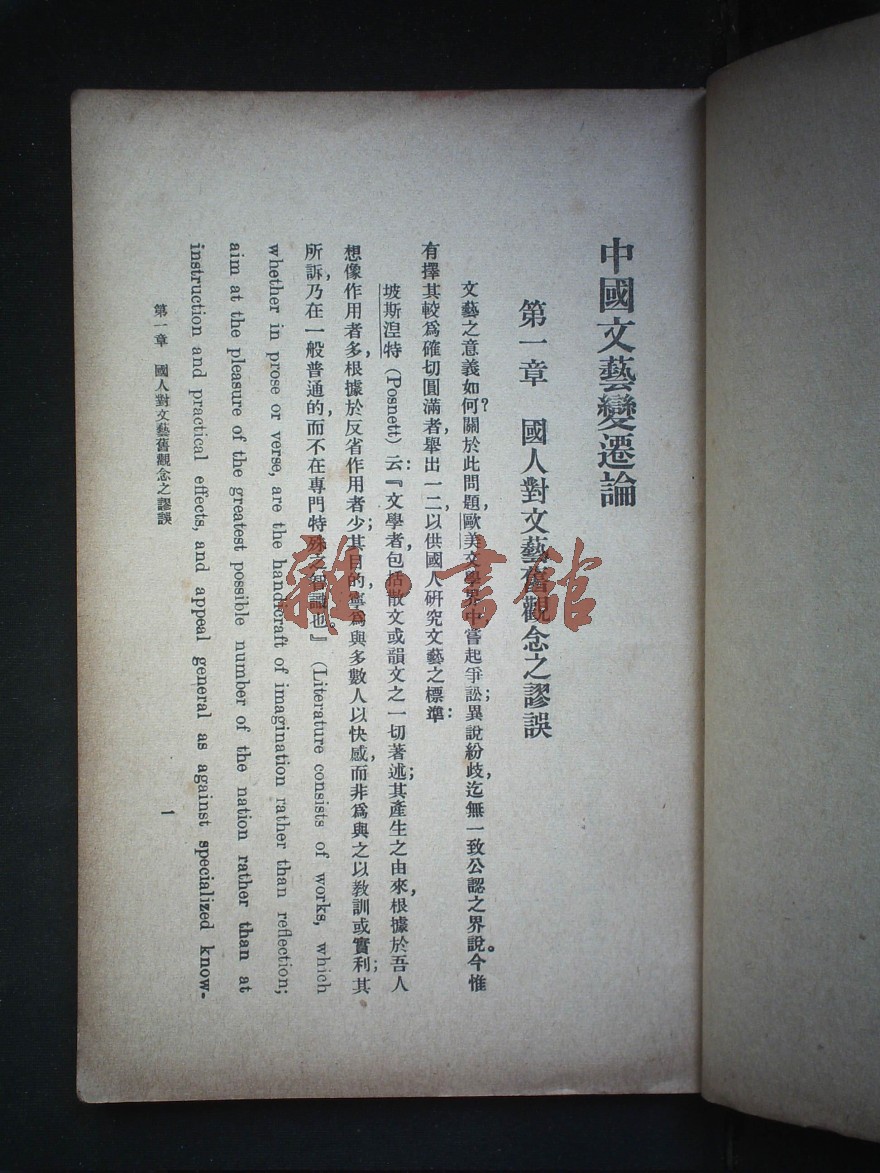 中國文藝變遷論
第一章 國人對文藝舊觀念之謬誤
文藝之意義如何?關於此問題,歐美文學界中嘗起爭訟;異說紛歧,迄無一致公認之界說。今惟
有擇其較爲確切圓滿者,舉出一二,以供國人研究文藝之標準:
坡斯湼特(Posnett)云:『文學者包括散文或韻文之一切著述;其產生之由來,根據於吾人
想像作用者多,根據於反省作用者少;其目的,寧爲與多數人以快感,而非爲與之以教訓或實利;其
所訴,乃在一般普通的,而不在專門特殊之智識也。』(Literature consists of works, which
whether in prose or verse, are the handicraft of imagination rather than reflection;
aim at the pleasure of the greatest possible number of the nation rather than at
instruction and practical effects, and appeal general as against specialized know-
第一章 國人對文藝舊觀念之謬誤
1
雜·書館